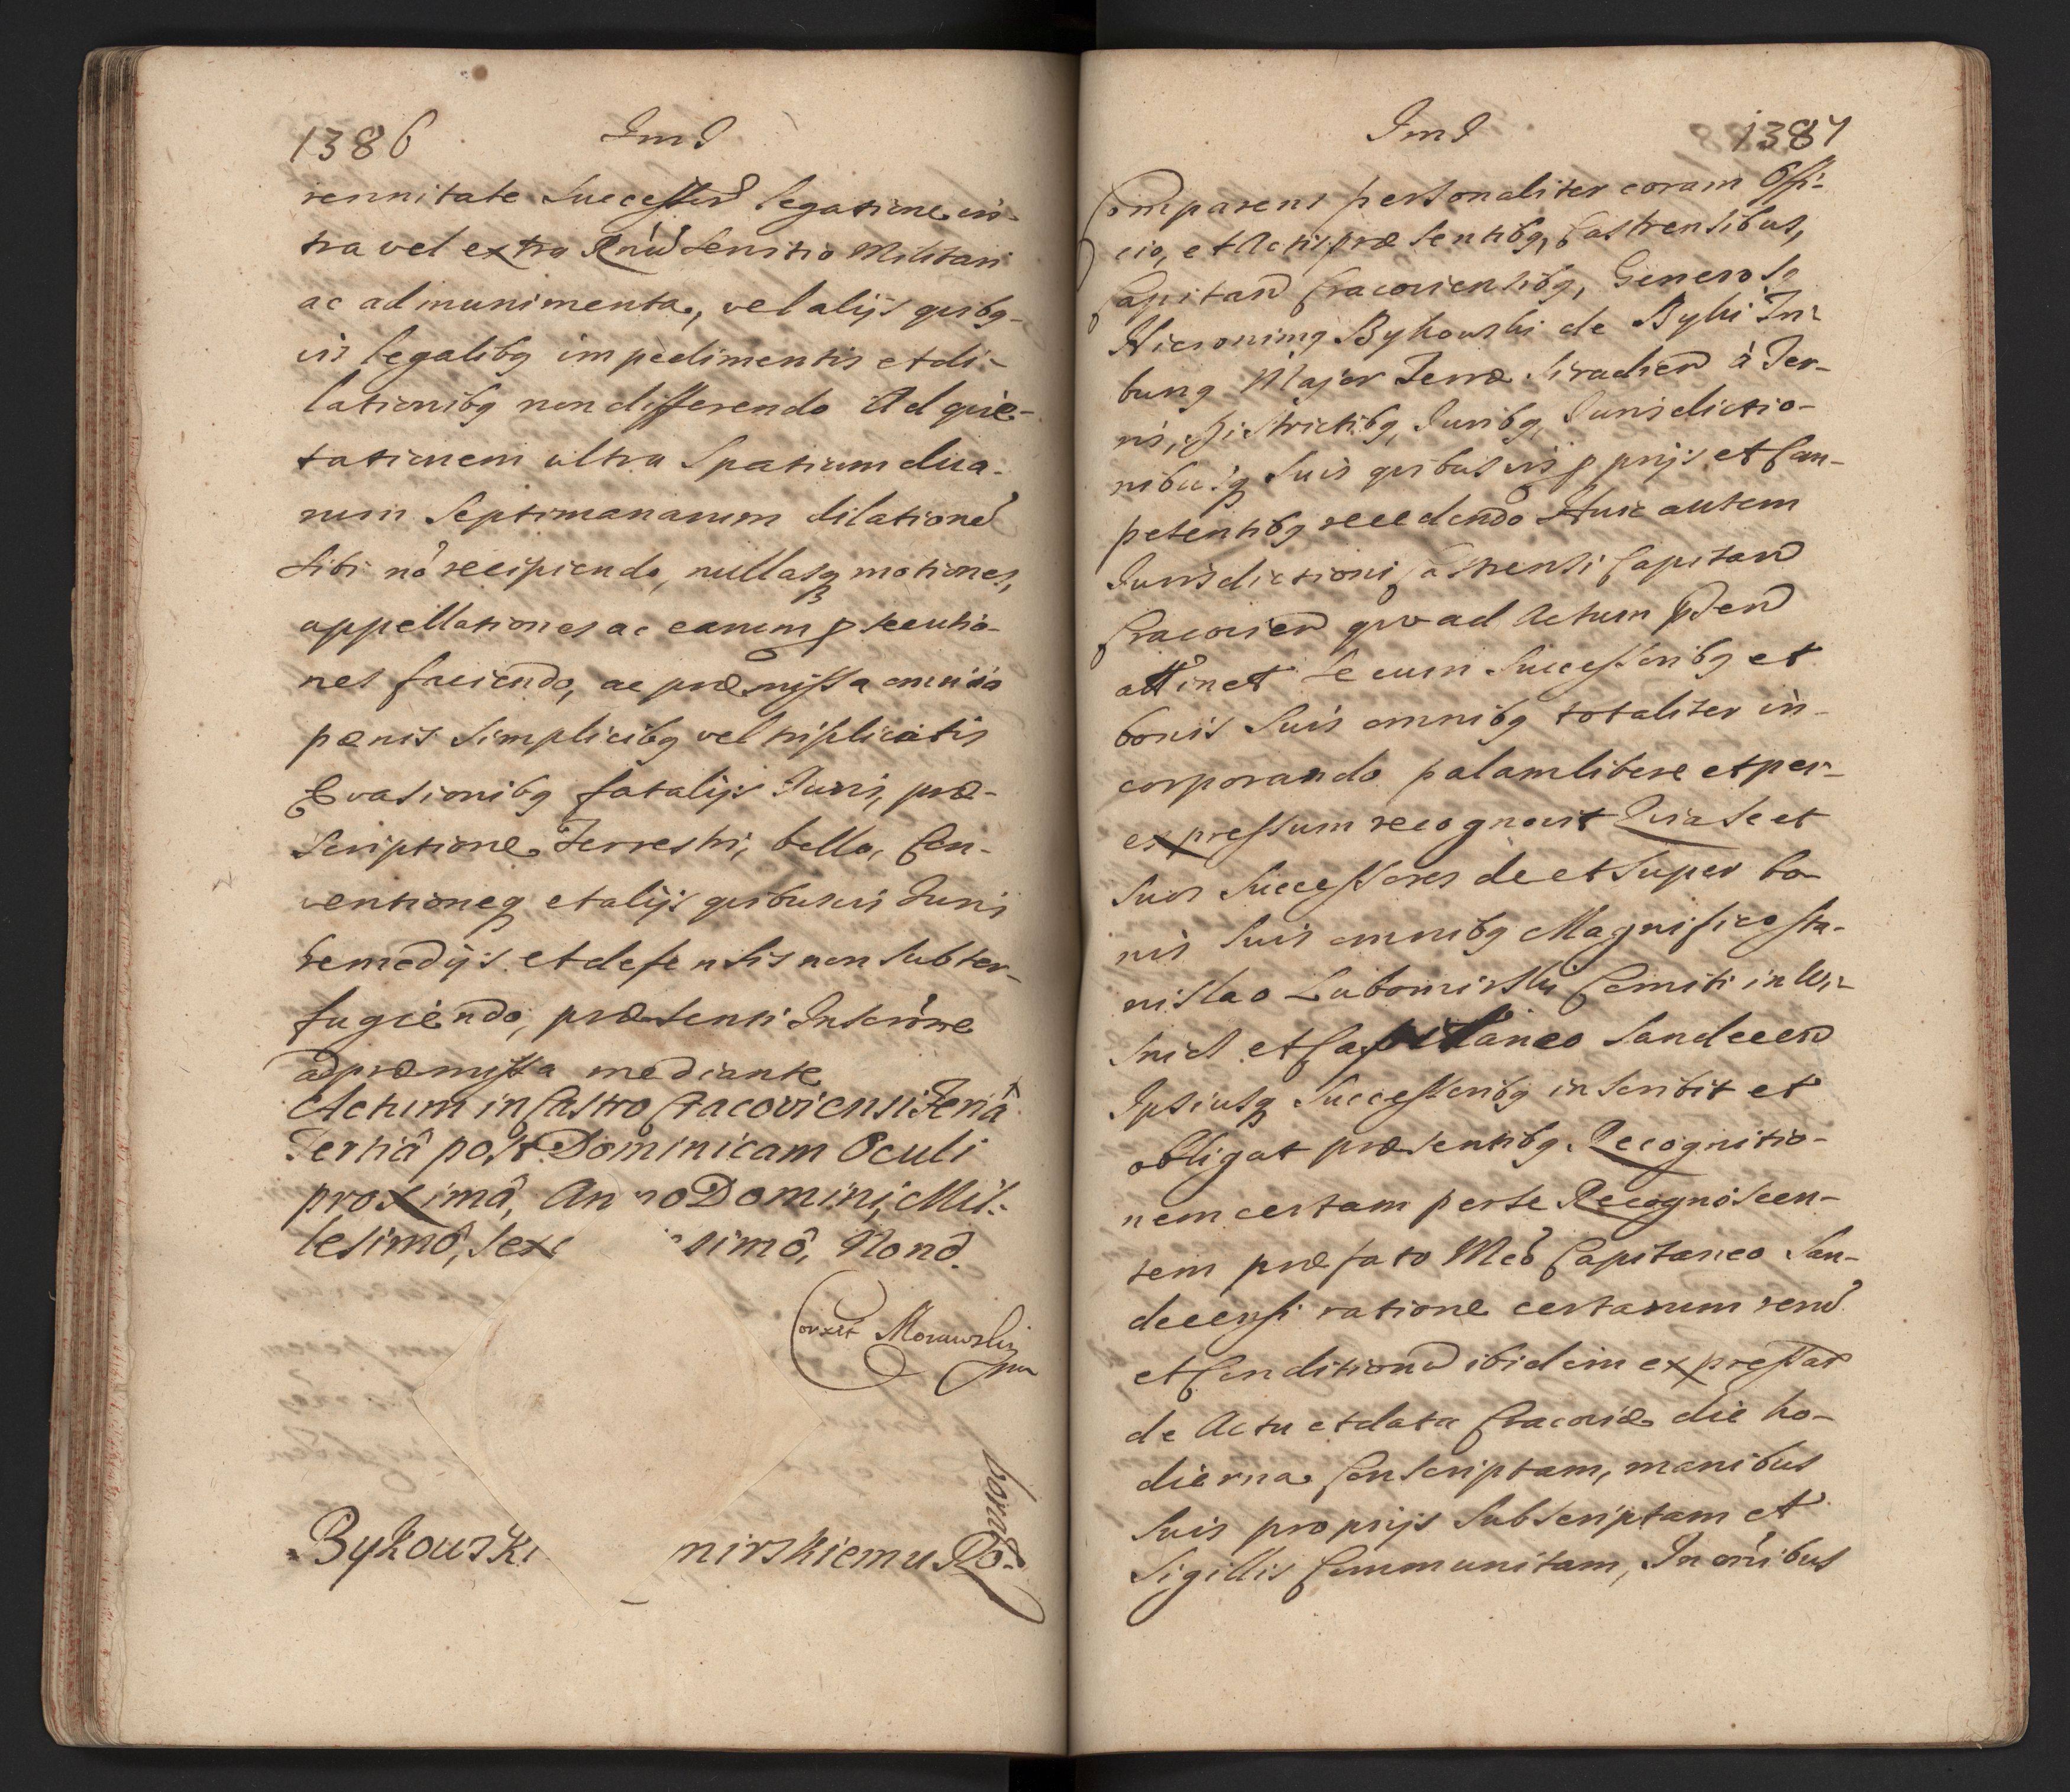 1386 Ind
rennitate Successū legatione in-
tra vel extra Rnū servitio Militari
ac ad munimenta, vel alijs quibq-
vis legalibq impedimentis et di-
lationibq non differendo Ad quie-
tationem ultra Spatium dua-
rum Septimanarum dilationē
sibi nō recipiendo, nullasq motiones,
appellationes ac earum ꝓsecutio-
nes faciendo, ac præmissa omnia
pœnis simplicibq vel triplicatis
Evasionibq fatalijs Juris, præ-
scriptione Terrestri, bello, Con-
ventioneq et alijs quibusvis Juris
remedijs et defensis non subter-
fugiendo, præsenti Inscrōne
ad præmissa mediante
Actum in Castro Cracoviensi Feriâ
Tertiâ post Dominicam Oculi
proximâ, Anno Domini, Mil-
lesimô, sexc simô, Nonô.
Corexit Morawski
mp
Bykowski mirskiemu Ro-
borat
Ind 1387
Comparens personaliter coram Offi-
cio, et Actis præsentibq, Castrensibus,
Capitan Cracoviensibq, Generosq
Hieronimq Bykowski de Byki Tri-
bunq Major Terræ Siradien à Ter-
ris, Districtibq, Juribq, Jurisdictio-
nibusq suis quibusvis ꝓprijs et Com-
petentibq recedendo Huic autem
Jurisdictioni Castrensi Capitan
Cracovien quo ad Actum ꝓnden
attinet se cum Successoribq et
bonis suis omnibq totaliter in-
corporando palam libere et per-
expressum recognovit Quia se et
suos Successores de et super bo-
nis suis omnibq Magnifico Sta-
nislao Lubomirski Comiti in Wi-
snicz et Capitaneo Sandecen
Ipsiusq Successoribq inscribit et
obligat præsentibq Recognitio-
nem certam per se Recognoscen-
tem præfato Mcō Capitaneo San-
decensi ratione certarum rerū
et Conditionū ibidem expressar
de Actu et data Cracoviæ die ho-
dierna Conscriptam, manibus
suis proprijs subscriptam et
Sigillis Communitam, In oñibus